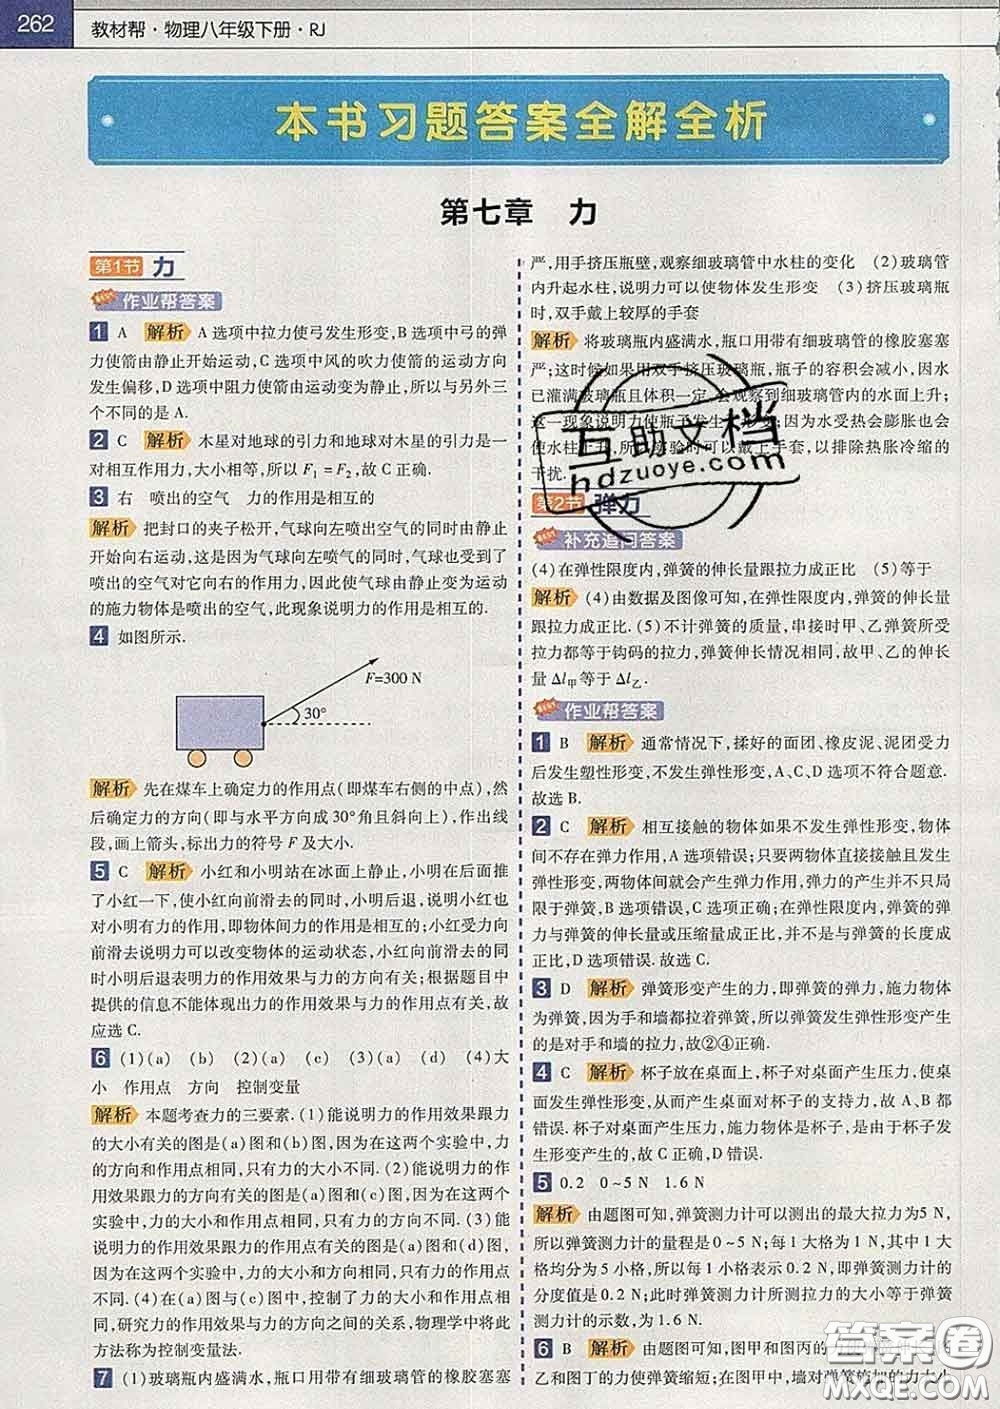 262
教材帮·物理八年级下册·RJ
本书习题答案全解全析
第七章 力
第1节 力
作业帮答案
1 A 解析 A 选项中拉力使弓发生形变,B 选项中弓的弹
力使箭由静止开始运动,C 选项中风的吹力使箭的运动方向
发生偏移,D 选项中阻力使箭由运动变为静止,所以与另外三
个不同的是 A.
2 C 解析 木星对地球的引力和地球对木星的引力是一
对相互作用力,大小相等,所以 F₁=F₂,故 C 正确.
3 右 喷出的空气 力的作用是相互的
解析 把封口的夹子松开,气球向左喷出空气的同时由静止
开始向右运动,这是因为气球向左喷气的同时,气球也受到了
喷出的空气对它向右的作用力,因此使气球由静止变为运动
的施力物体是喷出的空气,此现象说明力的作用是相互的.
4 如图所示.
F=300 N
30°
解析 先在煤车上确定力的作用点(即煤车右侧的中点),然
后确定力的方向(即与水平方向成30°角且斜向上),作出线
段,画上箭头,标出力的符号 F 及大小.
5 C 解析 小红和小明站在冰面上静止,小明在后面推
了小红一下,使小红向前滑去的同时,小明后退,说明小红也
对小明有力的作用,即物体间力的作用是相互的;小红受力向
前滑去说明力可以改变物体的运动状态,小红向前滑去的同
时小明后退表明力的作用效果与力的方向有关;根据题目中
提供的信息不能体现出力的作用效果与力的作用点有关,故
应选 C.
6 (1)(a) (b) (2)(a) (c) (3)(a) (d) (4)大
小 作用点 方向 控制变量
解析 本题考查力的三要素.(1)能说明力的作用效果跟力
的大小有关的图是(a)图和(b)图,因为在这两个实验中,力
的方向和作用点相同,只有力的大小不同.(2)能说明力的作
用效果跟力的方向有关的图是(a)图和(c)图,因为在这两个
实验中,力的大小和作用点相同,只有力的方向不同.(3)能
说明力的作用效果跟力的作用点有关的图是(a)图和(d)图,
因为在这两个实验中,力的大小和方向相同,只有力的作用点
不同.(4)在(a)图与(c)图中,控制了力的大小和作用点相
同,研究力的作用效果与力的方向之间的关系,物理学中将此
方法称为控制变量法.
7 (1)玻璃瓶内盛满水,瓶口用带有细玻璃管的橡胶塞塞
严,用手挤压瓶壁,观察细玻璃管中水柱的变化 (2)玻璃管
内升起水柱,说明力可以使物体发生形变 (3)挤压玻璃瓶
时,双手戴上较厚的手套
解析 将玻璃瓶内盛满水,瓶口用带有细玻璃管的橡胶塞塞
严;这时候如果用双手挤压玻璃瓶,瓶子的容积会减小,因水
已灌满玻璃瓶且体积一定,会观察到细玻璃管内的水面上升;
这一现象说明力使瓶子发生了形变;因为水受热会膨胀也会
使水柱上升,所以实验时可以戴上手套,以排除热胀冷缩的
干扰.
互助文档
hdzuoye.com
第2节 弹力
补充追问答案
(4)在弹性限度内,弹簧的伸长量跟拉力成正比 (5)等于
解析 (4)由数据及图像可知,在弹性限度内,弹簧的伸长量
跟拉力成正比.(5)不计弹簧的质量,串接时甲、乙弹簧所受
拉力都等于钩码的拉力,弹簧伸长情况相同,故甲、乙的伸长
量 Δl甲等于 Δl乙.
作业帮答案
1 B 解析 通常情况下,揉好的面团、橡皮泥、泥团受力
后发生塑性形变,不发生弹性形变,A、C、D 选项不符合题意.
故选 B.
2 C 解析 相互接触的物体如果不发生弹性形变,物体
间不存在弹力作用,A 选项错误;只要两物体直接接触且发生
弹性形变,两物体间就会产生弹力作用,弹力的产生并不只局
限于弹簧,B 选项错误,C 选项正确;在弹性限度内,弹簧的弹
力与弹簧的伸长量或压缩量成正比,并不是与弹簧的长度成
正比,D 选项错误.故选 C.
3 D 解析 弹簧形变产生的力,即弹簧的弹力,施力物体
为弹簧,因为手和墙都拉着弹簧,所以弹簧发生弹性形变产生
的是对手和墙的拉力,故②④正确.
4 C 解析 杯子放在桌面上,杯子对桌面产生压力,使桌
面发生弹性形变,从而产生桌面对杯子的支持力,故 A、B 都
错误.杯子对桌面产生压力,施力物体是杯子,是由于杯子发
生形变而产生的,故 C 正确,D 错误.
5 0.2 0~5 N 1.6 N
解析 由题图可知,弹簧测力计可以测出的最大拉力为5 N,
所以弹簧测力计的量程是 0~5 N;每 1 大格为 1 N,其中 1 大
格均分为 5 小格,所以每 1 小格表示 0.2 N,即弹簧测力计的
分度值是 0.2 N;此时弹簧测力计所测拉力的大小等于弹簧
测力计的示数,为 1.6 N.
6 B 解析 由题图可知,图甲和图丙的
乙和图丁的力使弹簧缩短;在图甲中,墙对弹簧的力大小
答案圈
MXQE.COM